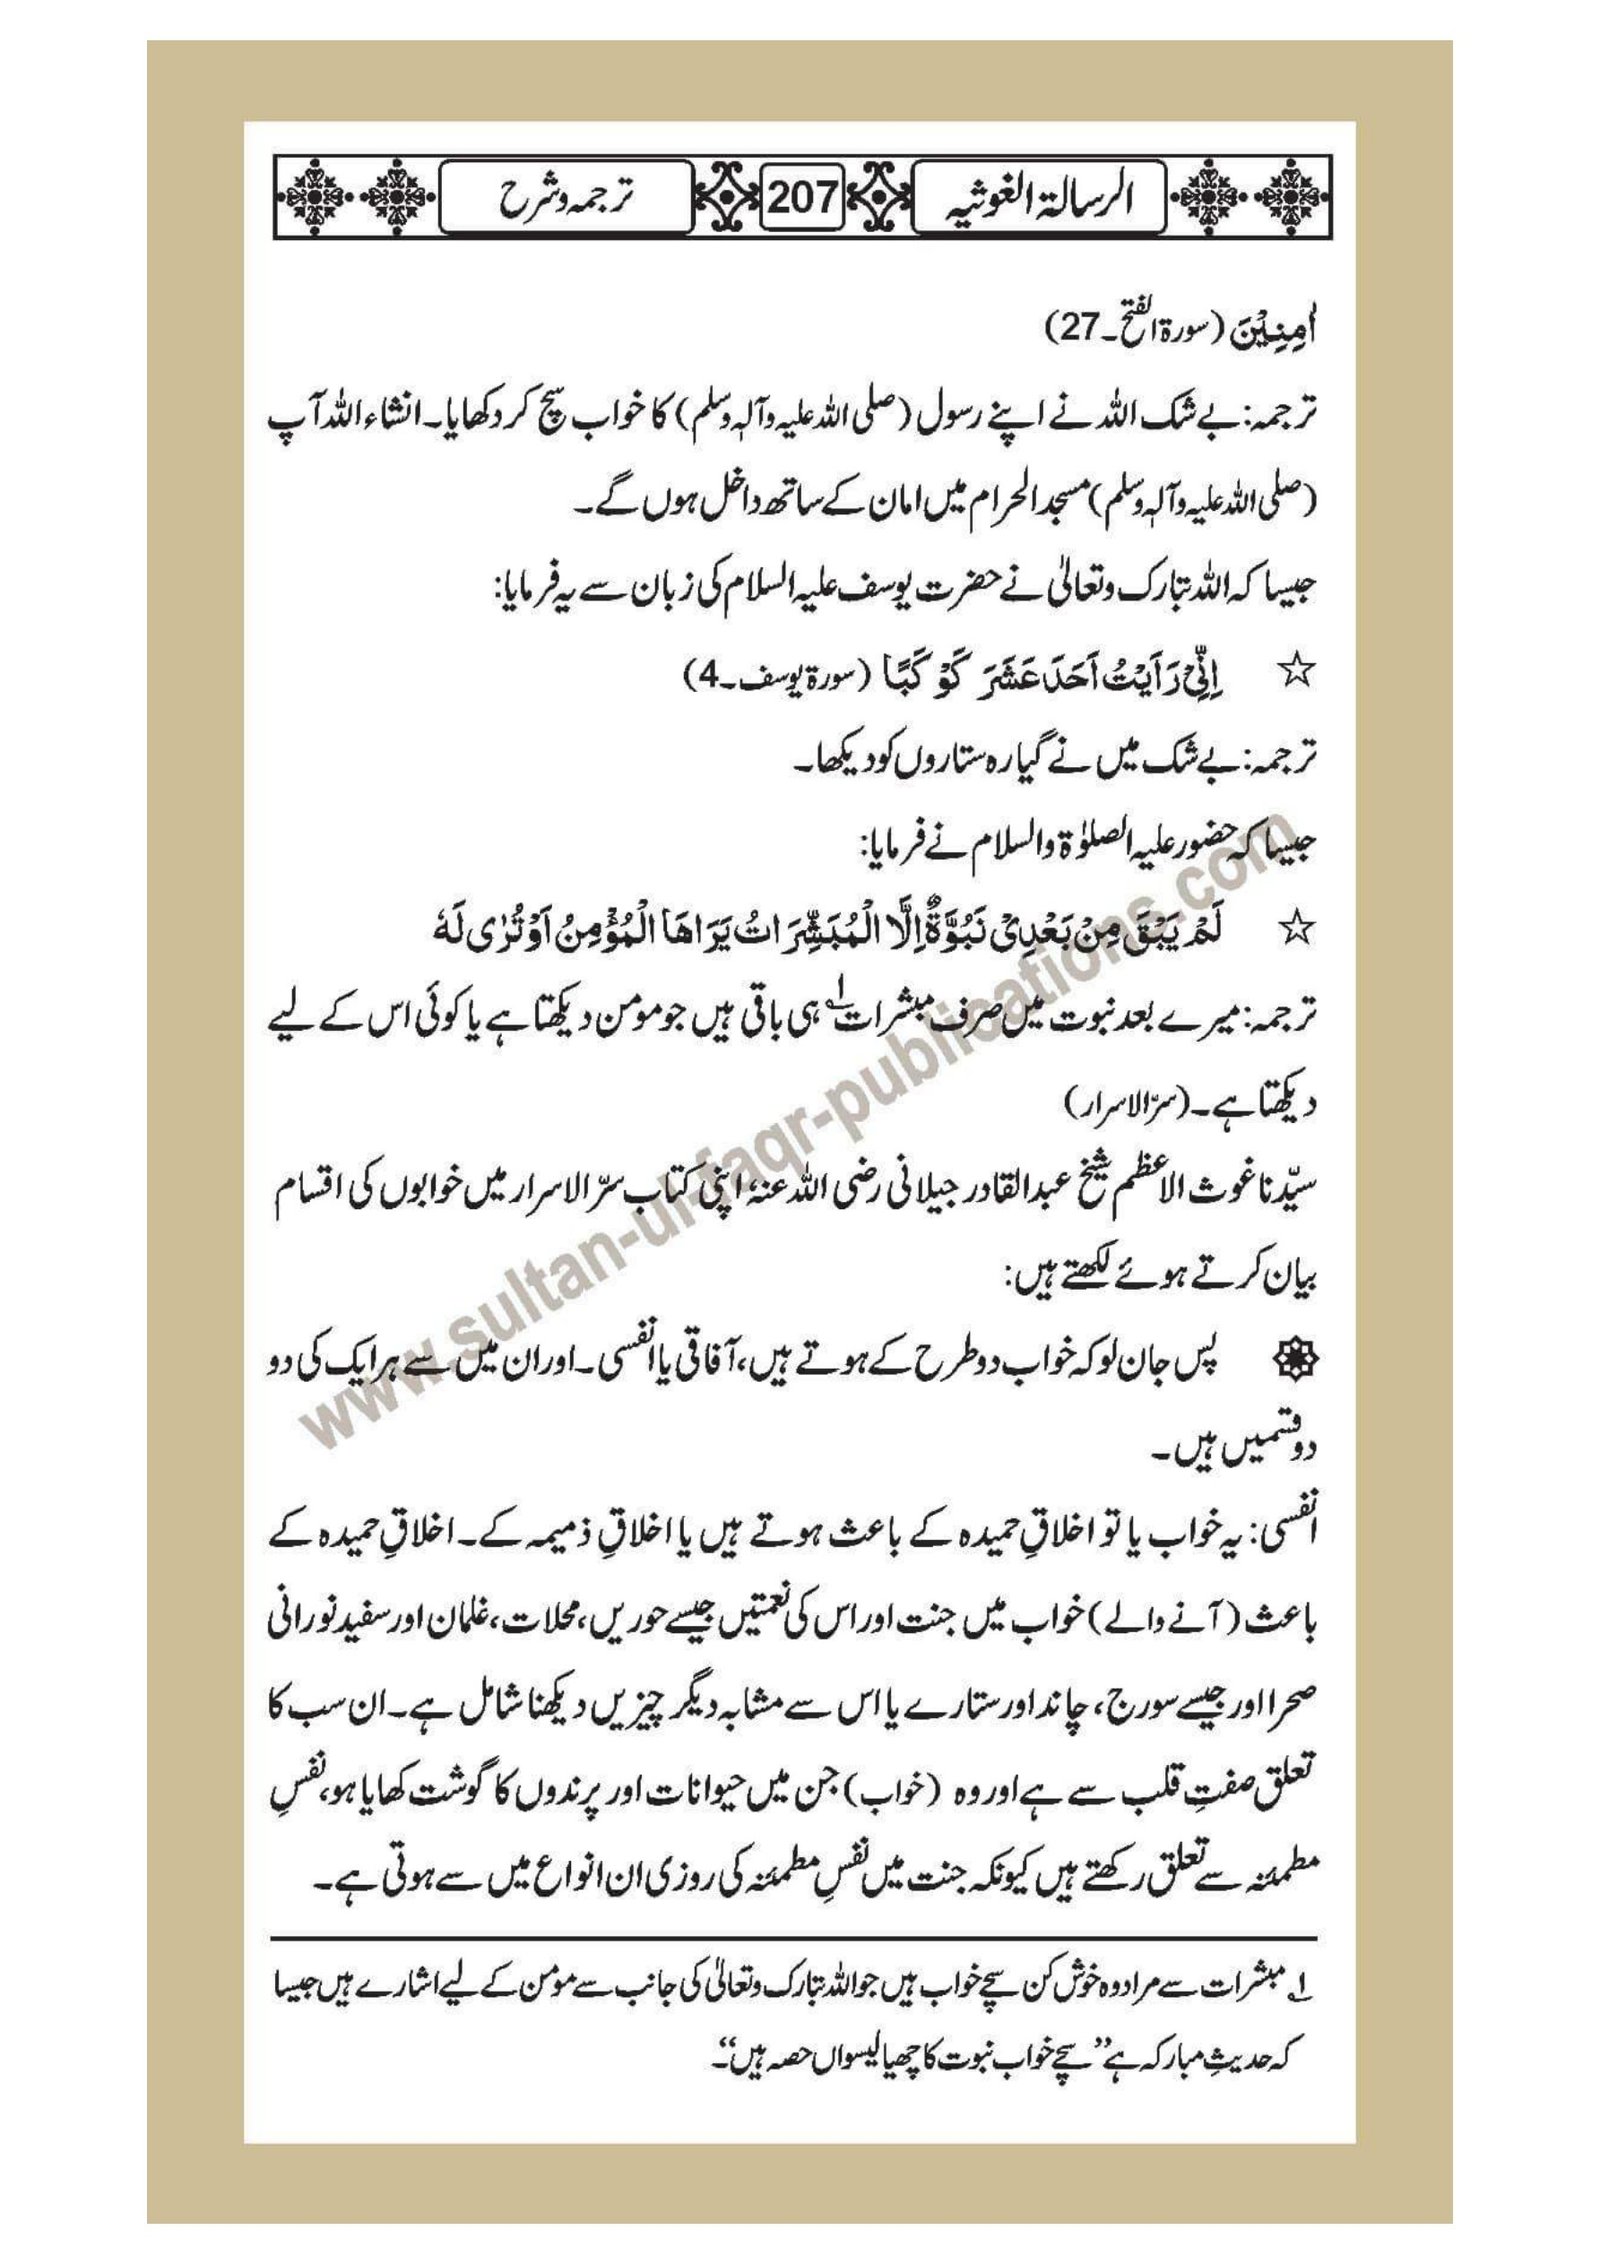 الرسالۃ الغوثیہ 207 ترجمہ و شرح
اٰمِنِیْنَ (سورۃ الفتح۔27)
ترجمہ: بے شک اللہ نے اپنے رسول (صلی اللہ علیہ وآلہٖ وسلم) کا خواب سچ کر دکھایا۔ انشاء اللہ آپ
(صلی اللہ علیہ وآلہٖ وسلم) مسجد الحرام میں امان کے ساتھ داخل ہوں گے۔
جیسا کہ اللہ تبارک وتعالیٰ نے حضرت یوسف علیہ السلام کی زبان سے یہ فرمایا:
☆ اِنِّیْ رَاَیْتُ اَحَدَ عَشَرَ کَوْکَبًا (سورۃ یوسف۔4)
ترجمہ: بے شک میں نے گیارہ ستاروں کو دیکھا۔
جیسا کہ حضور علیہ الصلوٰۃ والسلام نے فرمایا:
☆ لَمْ یَبْقَ مِنْ بَعْدِیْ نَبُوَّۃٌ اِلَّا الْمُبَشِّرَاتُ یَرَاھَا الْمُؤْمِنُ اَوْ تُرٰی لَہٗ
ترجمہ: میرے بعد نبوت میں صرف مبشرات۱؎ ہی باقی ہیں جو مومن دیکھتا ہے یا کوئی اس کے لیے
دیکھتا ہے۔ (سرّ الاسرار)
سیّدنا غوث الاعظم شیخ عبدالقادر جیلانی رضی اللہ عنہٗ اپنی کتاب سرّ الاسرار میں خوابوں کی اقسام
بیان کرتے ہوئے لکھتے ہیں:
پس جان لو کہ خواب دو طرح کے ہوتے ہیں، آفاقی یا انفسی۔ اور ان میں سے ہر ایک کی دو
دو قسمیں ہیں۔
انفسی: یہ خواب یا تو اخلاقِ حمیدہ کے باعث ہوتے ہیں یا اخلاقِ ذمیمہ کے۔ اخلاقِ حمیدہ کے
باعث (آنے والے) خواب میں جنت اور اس کی نعمتیں جیسے حوریں، محلات، غلمان اور سفید نورانی
صحرا اور جیسے سورج، چاند اور ستارے یا اس سے مشابہ دیگر چیزیں دیکھنا شامل ہے۔ ان سب کا
تعلق صفتِ قلب سے ہے اور وہ (خواب) جن میں حیوانات اور پرندوں کا گوشت کھایا ہو، نفسِ
مطمئنہ سے تعلق رکھتے ہیں کیونکہ جنت میں نفسِ مطمئنہ کی روزی ان انواع میں سے ہوتی ہے۔
۱؎ مبشرات سے مراد وہ خوش کن سچے خواب ہیں جو اللہ تبارک وتعالیٰ کی جانب سے مومن کے لیے اشارے ہیں جیسا
کہ حدیثِ مبارکہ ہے ”سچے خواب نبوت کا چھیالیسواں حصہ ہیں“۔
www.sultan-ul-faqr-publications.com